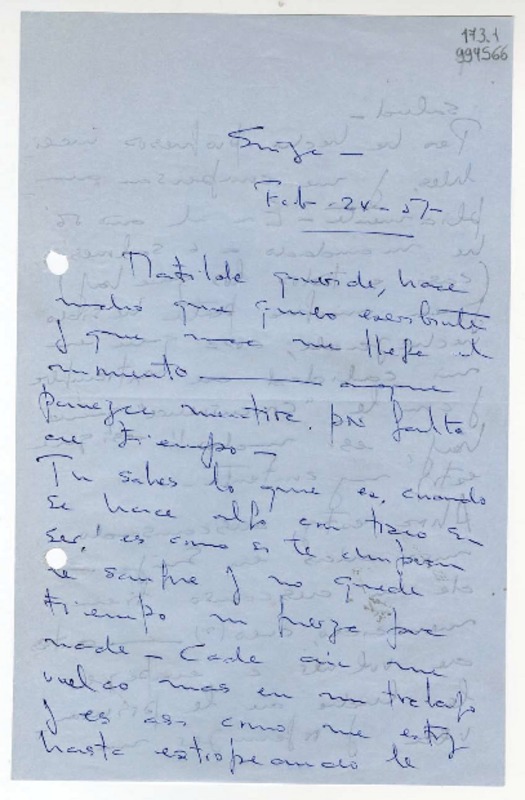 173.1
994566
Suiza —
Feb - 24 - 57 -
Matilde querida, hace
mucho que quiero escribirte
y que no me llega el
momento — aunque
parezca mentira, por falta
de tiempo —
Tu sabes lo que es, cuando
se hace algo con todo su
ser! es como si te chuparan
la sangre y no quede
tiempo ni fuerza para
nada — Cada día me
vuelco mas en mi trabajo
y es así como me estoy
hasta estropeando la